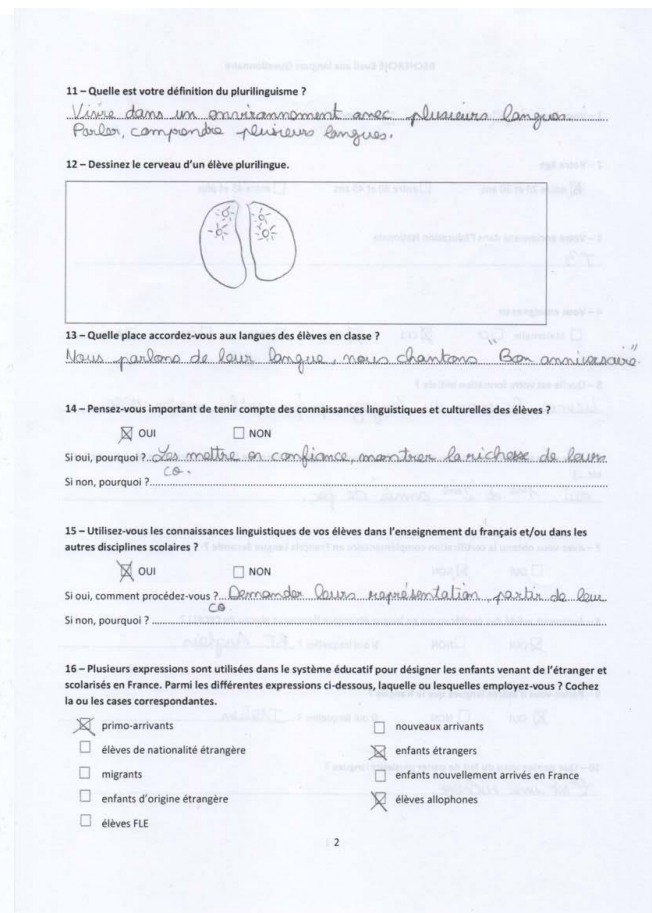 11 – Quelle est votre définition du plurilinguisme ?
Vivre dans un environnement avec plusieurs langues.
Parler, comprendre plusieurs langues.
12 – Dessinez le cerveau d'un élève plurilingue.
13 – Quelle place accordez-vous aux langues des élèves en classe ?
Nous parlons de leur langue, nous chantons "Bon anniversaire"
14 – Pensez-vous important de tenir compte des connaissances linguistiques et culturelles des élèves ?
OUI NON
Si oui, pourquoi ? Les mettre en confiance, montrer la richesse de leurs
co.
Si non, pourquoi ?
15 – Utilisez-vous les connaissances linguistiques de vos élèves dans l'enseignement du français et/ou dans les
autres disciplines scolaires ?
OUI NON
Si oui, comment procédez-vous ? Demander leurs représentation, partir de leur
co.
Si non, pourquoi ?
16 – Plusieurs expressions sont utilisées dans le système éducatif pour désigner les enfants venant de l'étranger et
scolarisés en France. Parmi les différentes expressions ci-dessous, laquelle ou lesquelles employez-vous ? Cochez
la ou les cases correspondantes.
primo-arrivants nouveaux arrivants
élèves de nationalité étrangère enfants étrangers
migrants enfants nouvellement arrivés en France
enfants d'origine étrangère élèves allophones
élèves FLE
2